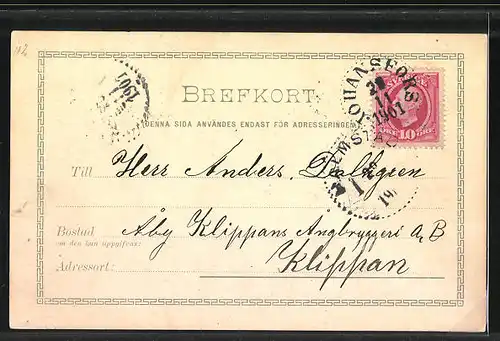 BREFKORT
(DENNA SIDA ANVÄNDES ENDAST FÖR ADRESSERINGEN)
JOHANSFORS
1901
1901
10 ÖRE
Till Herr Anders Dahlgren
Bostad Åby Klippans Angbryggeri A B
(om den kan uppgifvas):
Adressort: Klippan